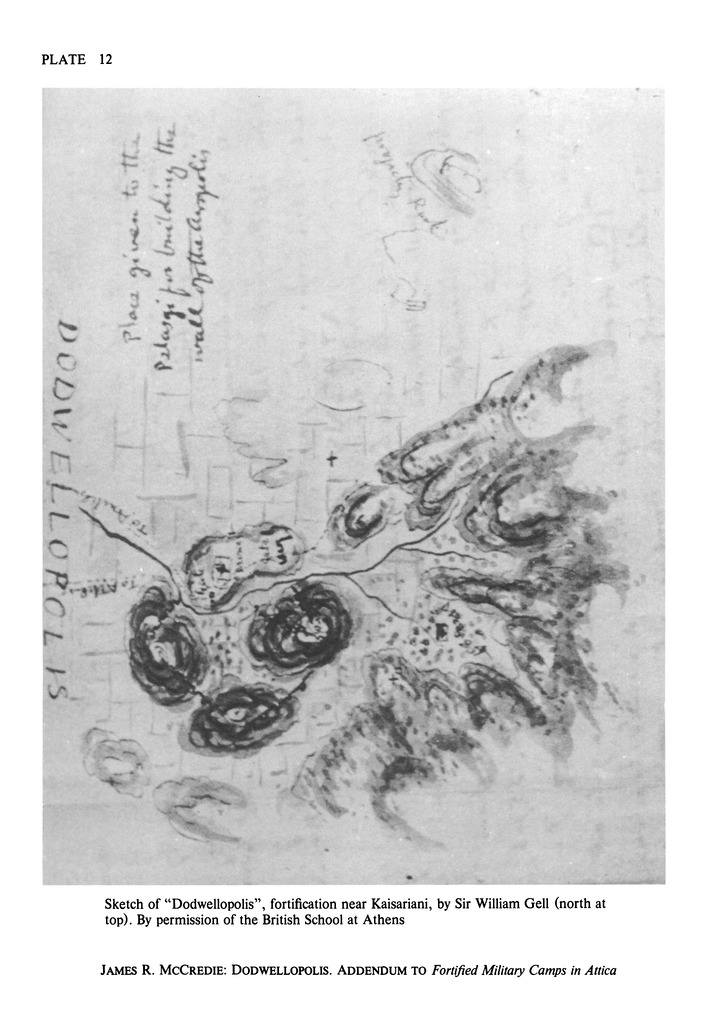 PLATE 12
Place given to the
Pelasgi for building the
wall of the Acropolis
DODWELLOPOLIS
To
To
Sketch of “Dodwellopolis”, fortification near Kaisariani, by Sir William Gell (north at
top). By permission of the British School at Athens
JAMES R. MCCREDIE: DODWELLOPOLIS. ADDENDUM TO Fortified Military Camps in Attica